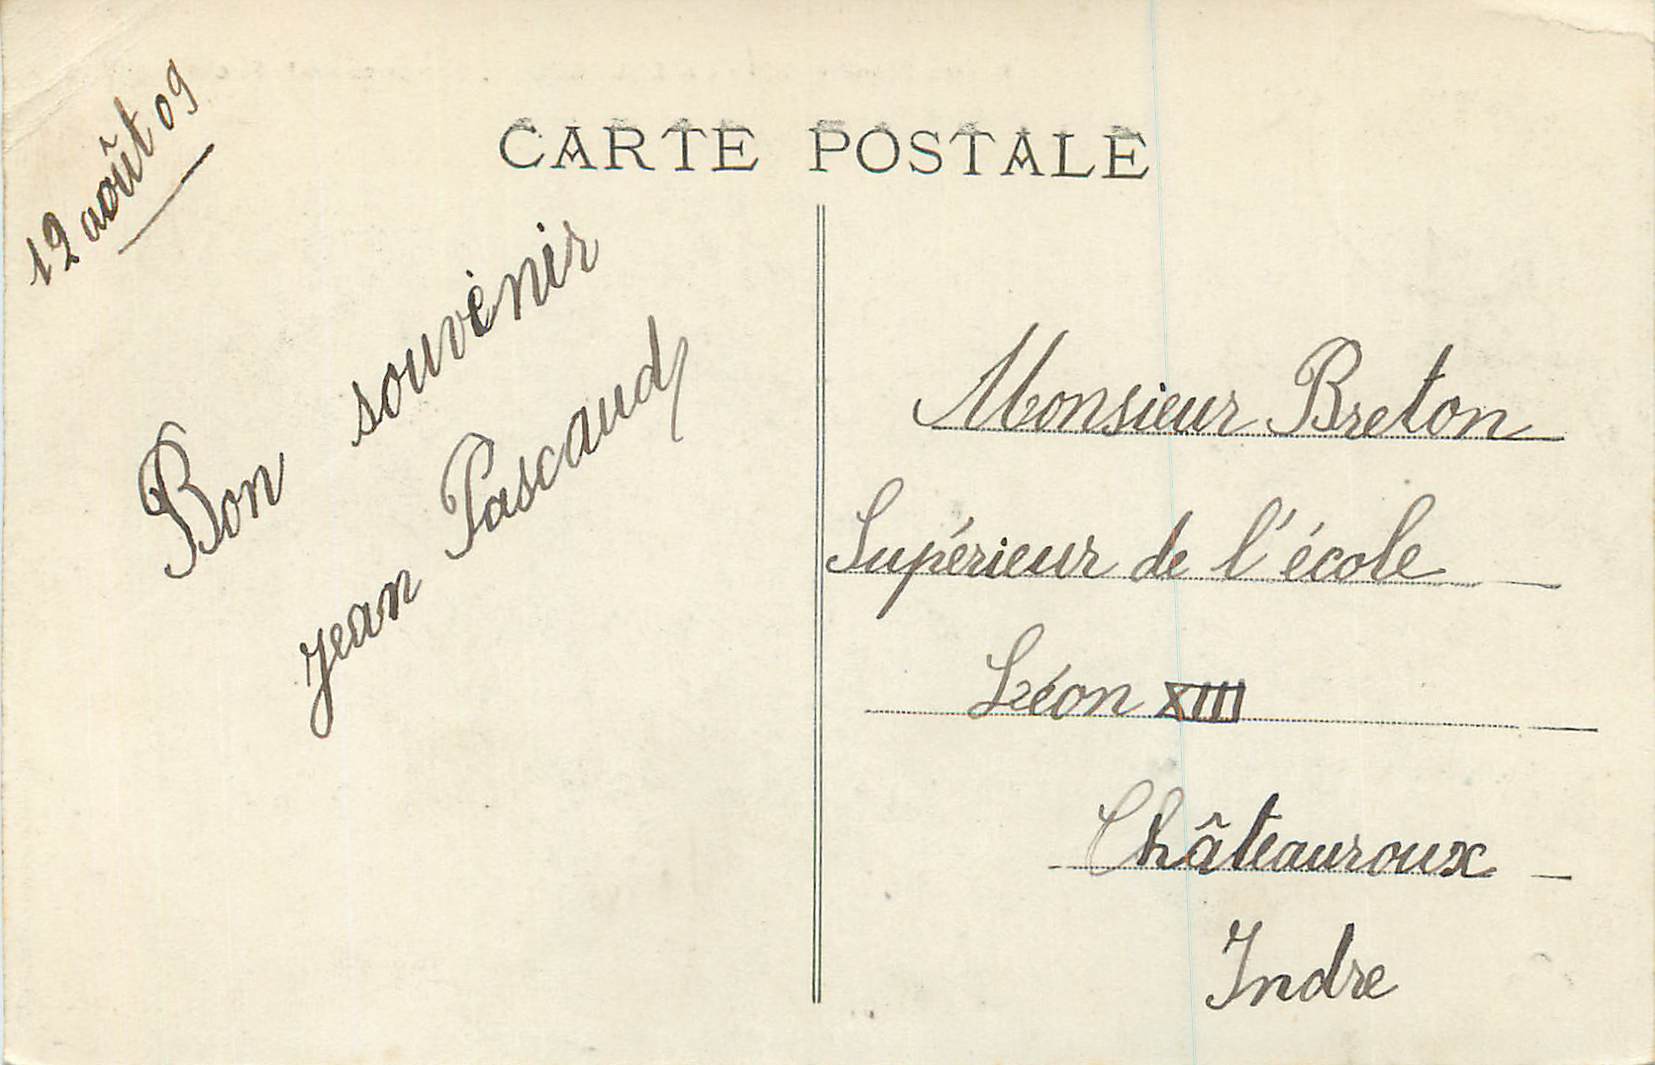 CARTE POSTALE
12 août 09
Bon souvenir
Jean Pascaud
Monsieur Breton
Supérieur de l'école
Léon XIII
Châteauroux
Indre